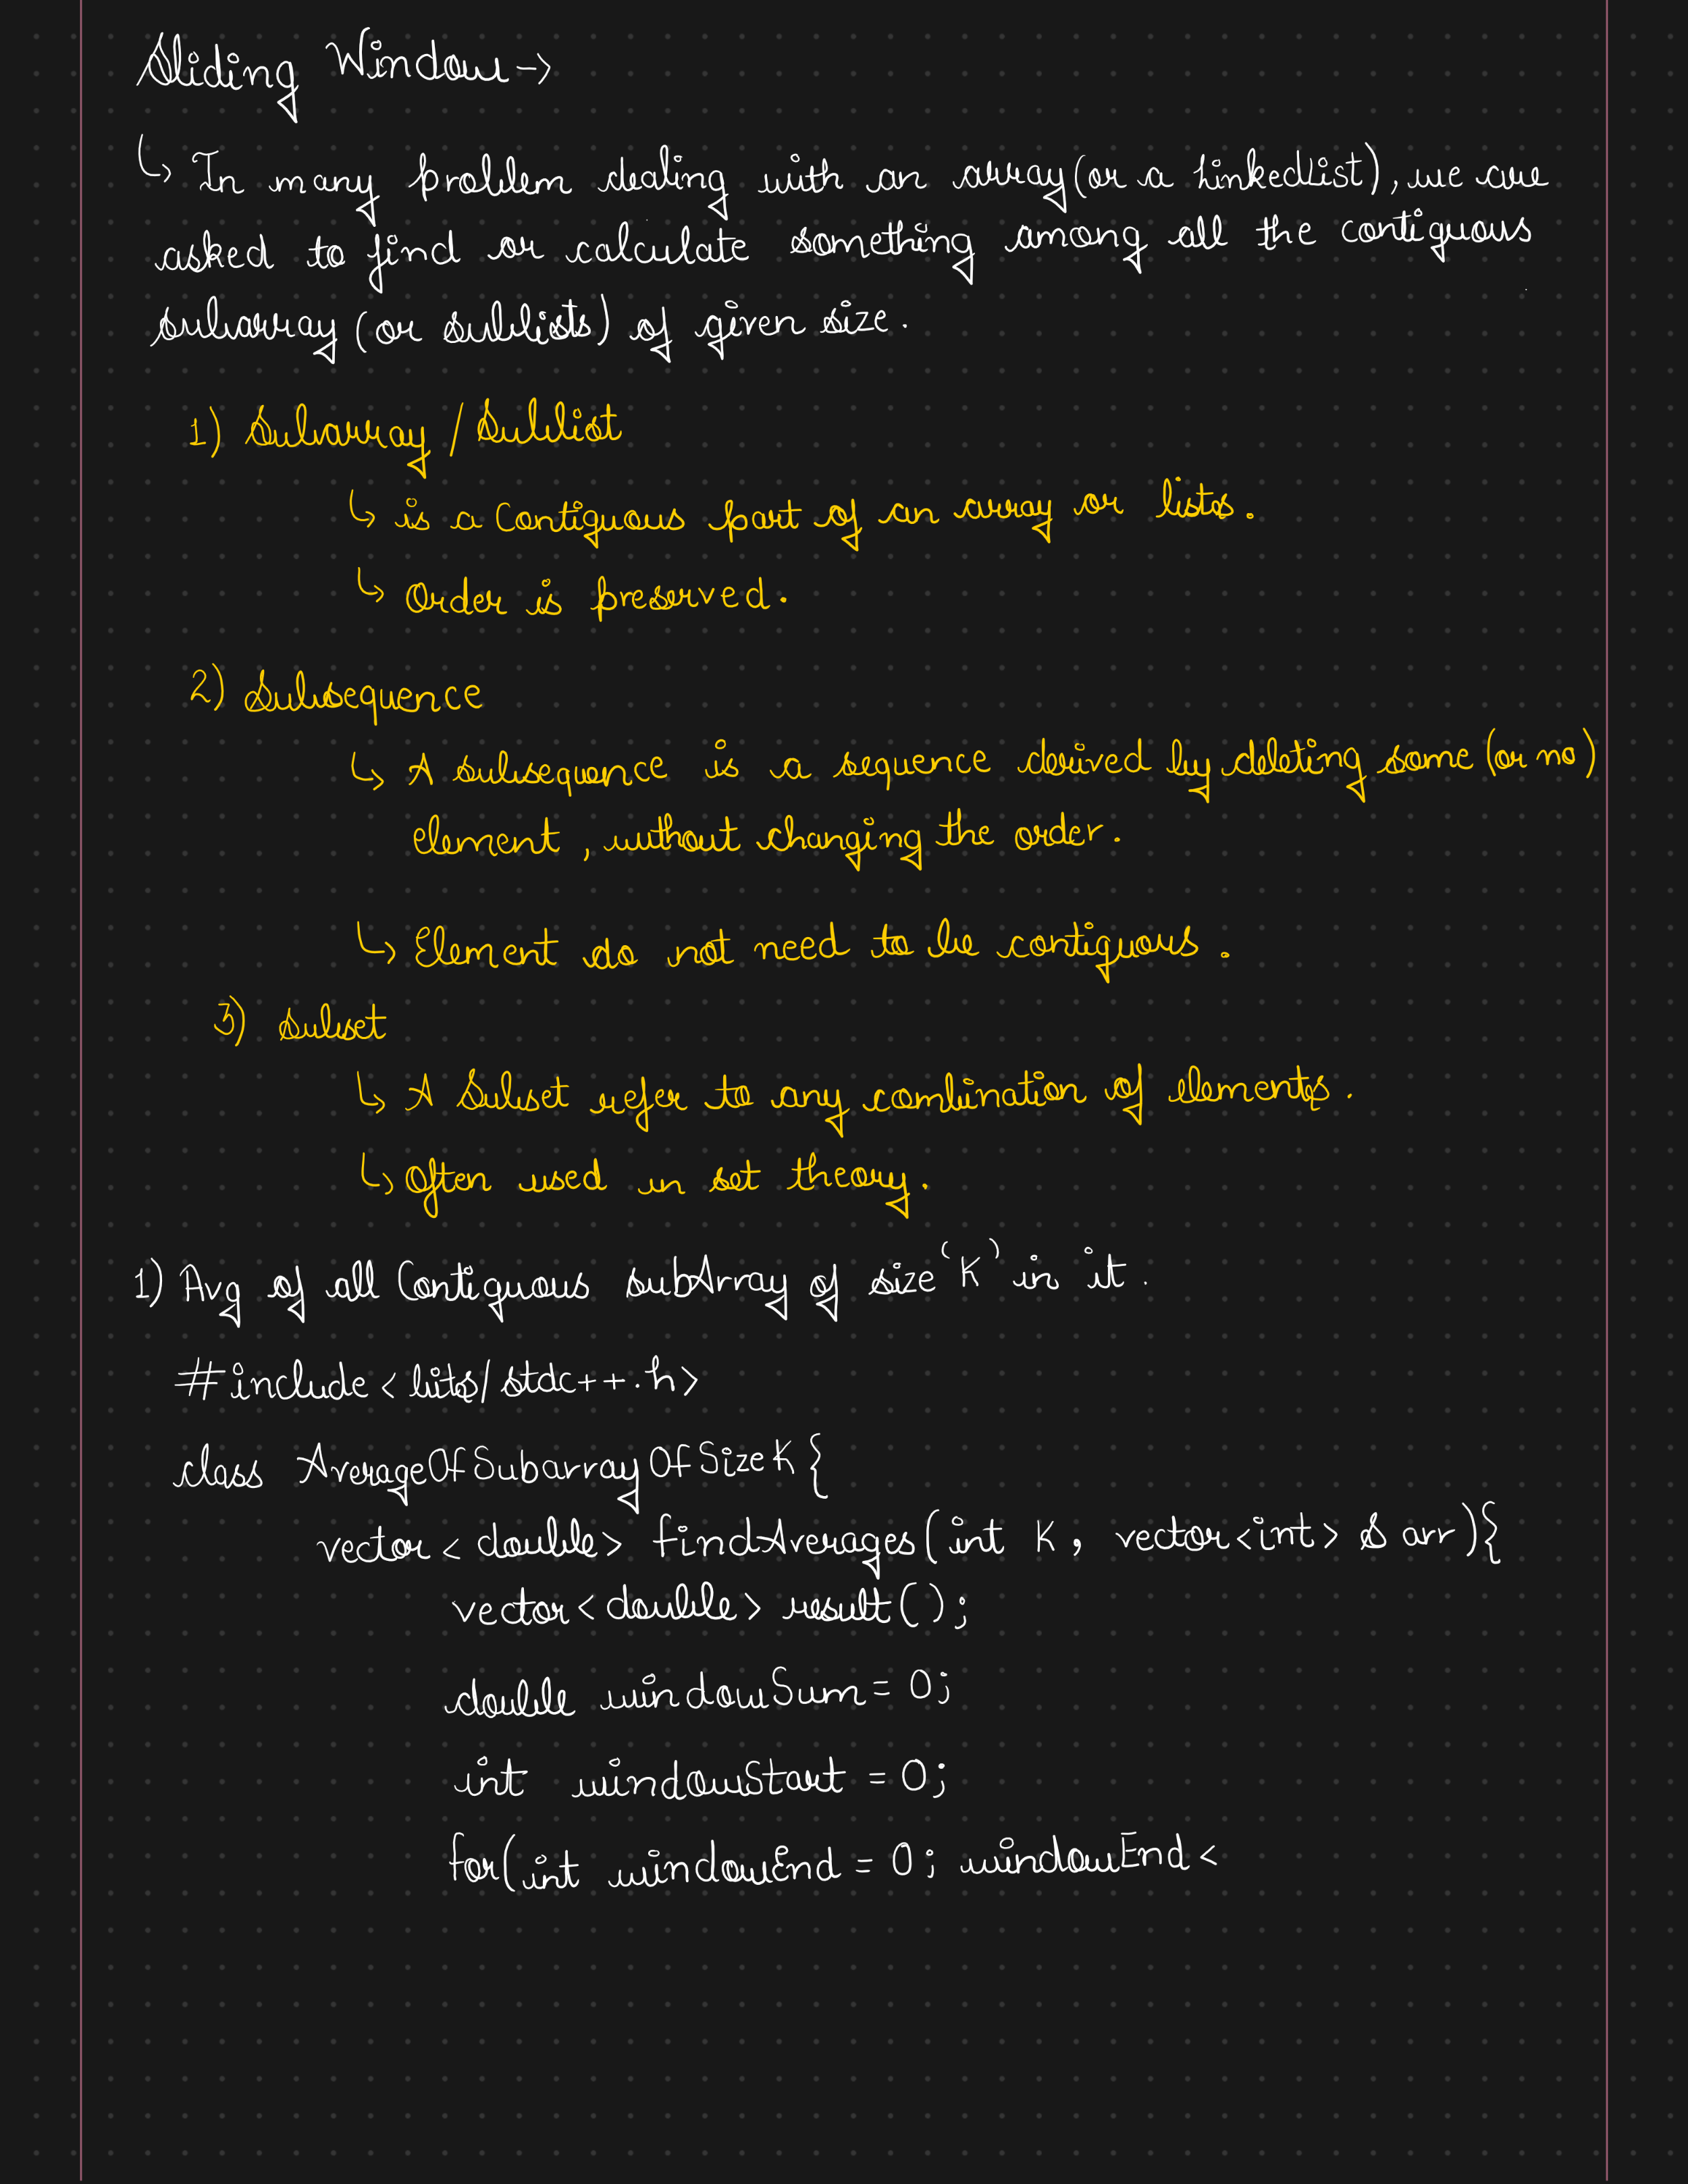 Sliding Window →
↳ In many problem dealing with an array (or a LinkedList), we are
asked to find or calculate something among all the contiguous
subarray (or sublists) of given size.
1) Subarray / Sublist
↳ is a Contiguous part of an array or lists.
↳ Order is preserved.
2) Subsequence
↳ A subsequence is a sequence derived by deleting some (or no)
element, without changing the order.
↳ Element do not need to be contiguous.
3) Subset
↳ A Subset refer to any combination of elements.
↳ Often used in set theory.
1) Avg of all Contiguous subArray of size 'K' in it.
#include <bits/stdc++.h>
class AverageOfSubarrayOfSizeK {
vector<double> findAverages(int K, vector<int> & arr){
vector<double> result();
double windowSum = 0;
int windowStart = 0;
for(int windowEnd = 0; windowEnd <